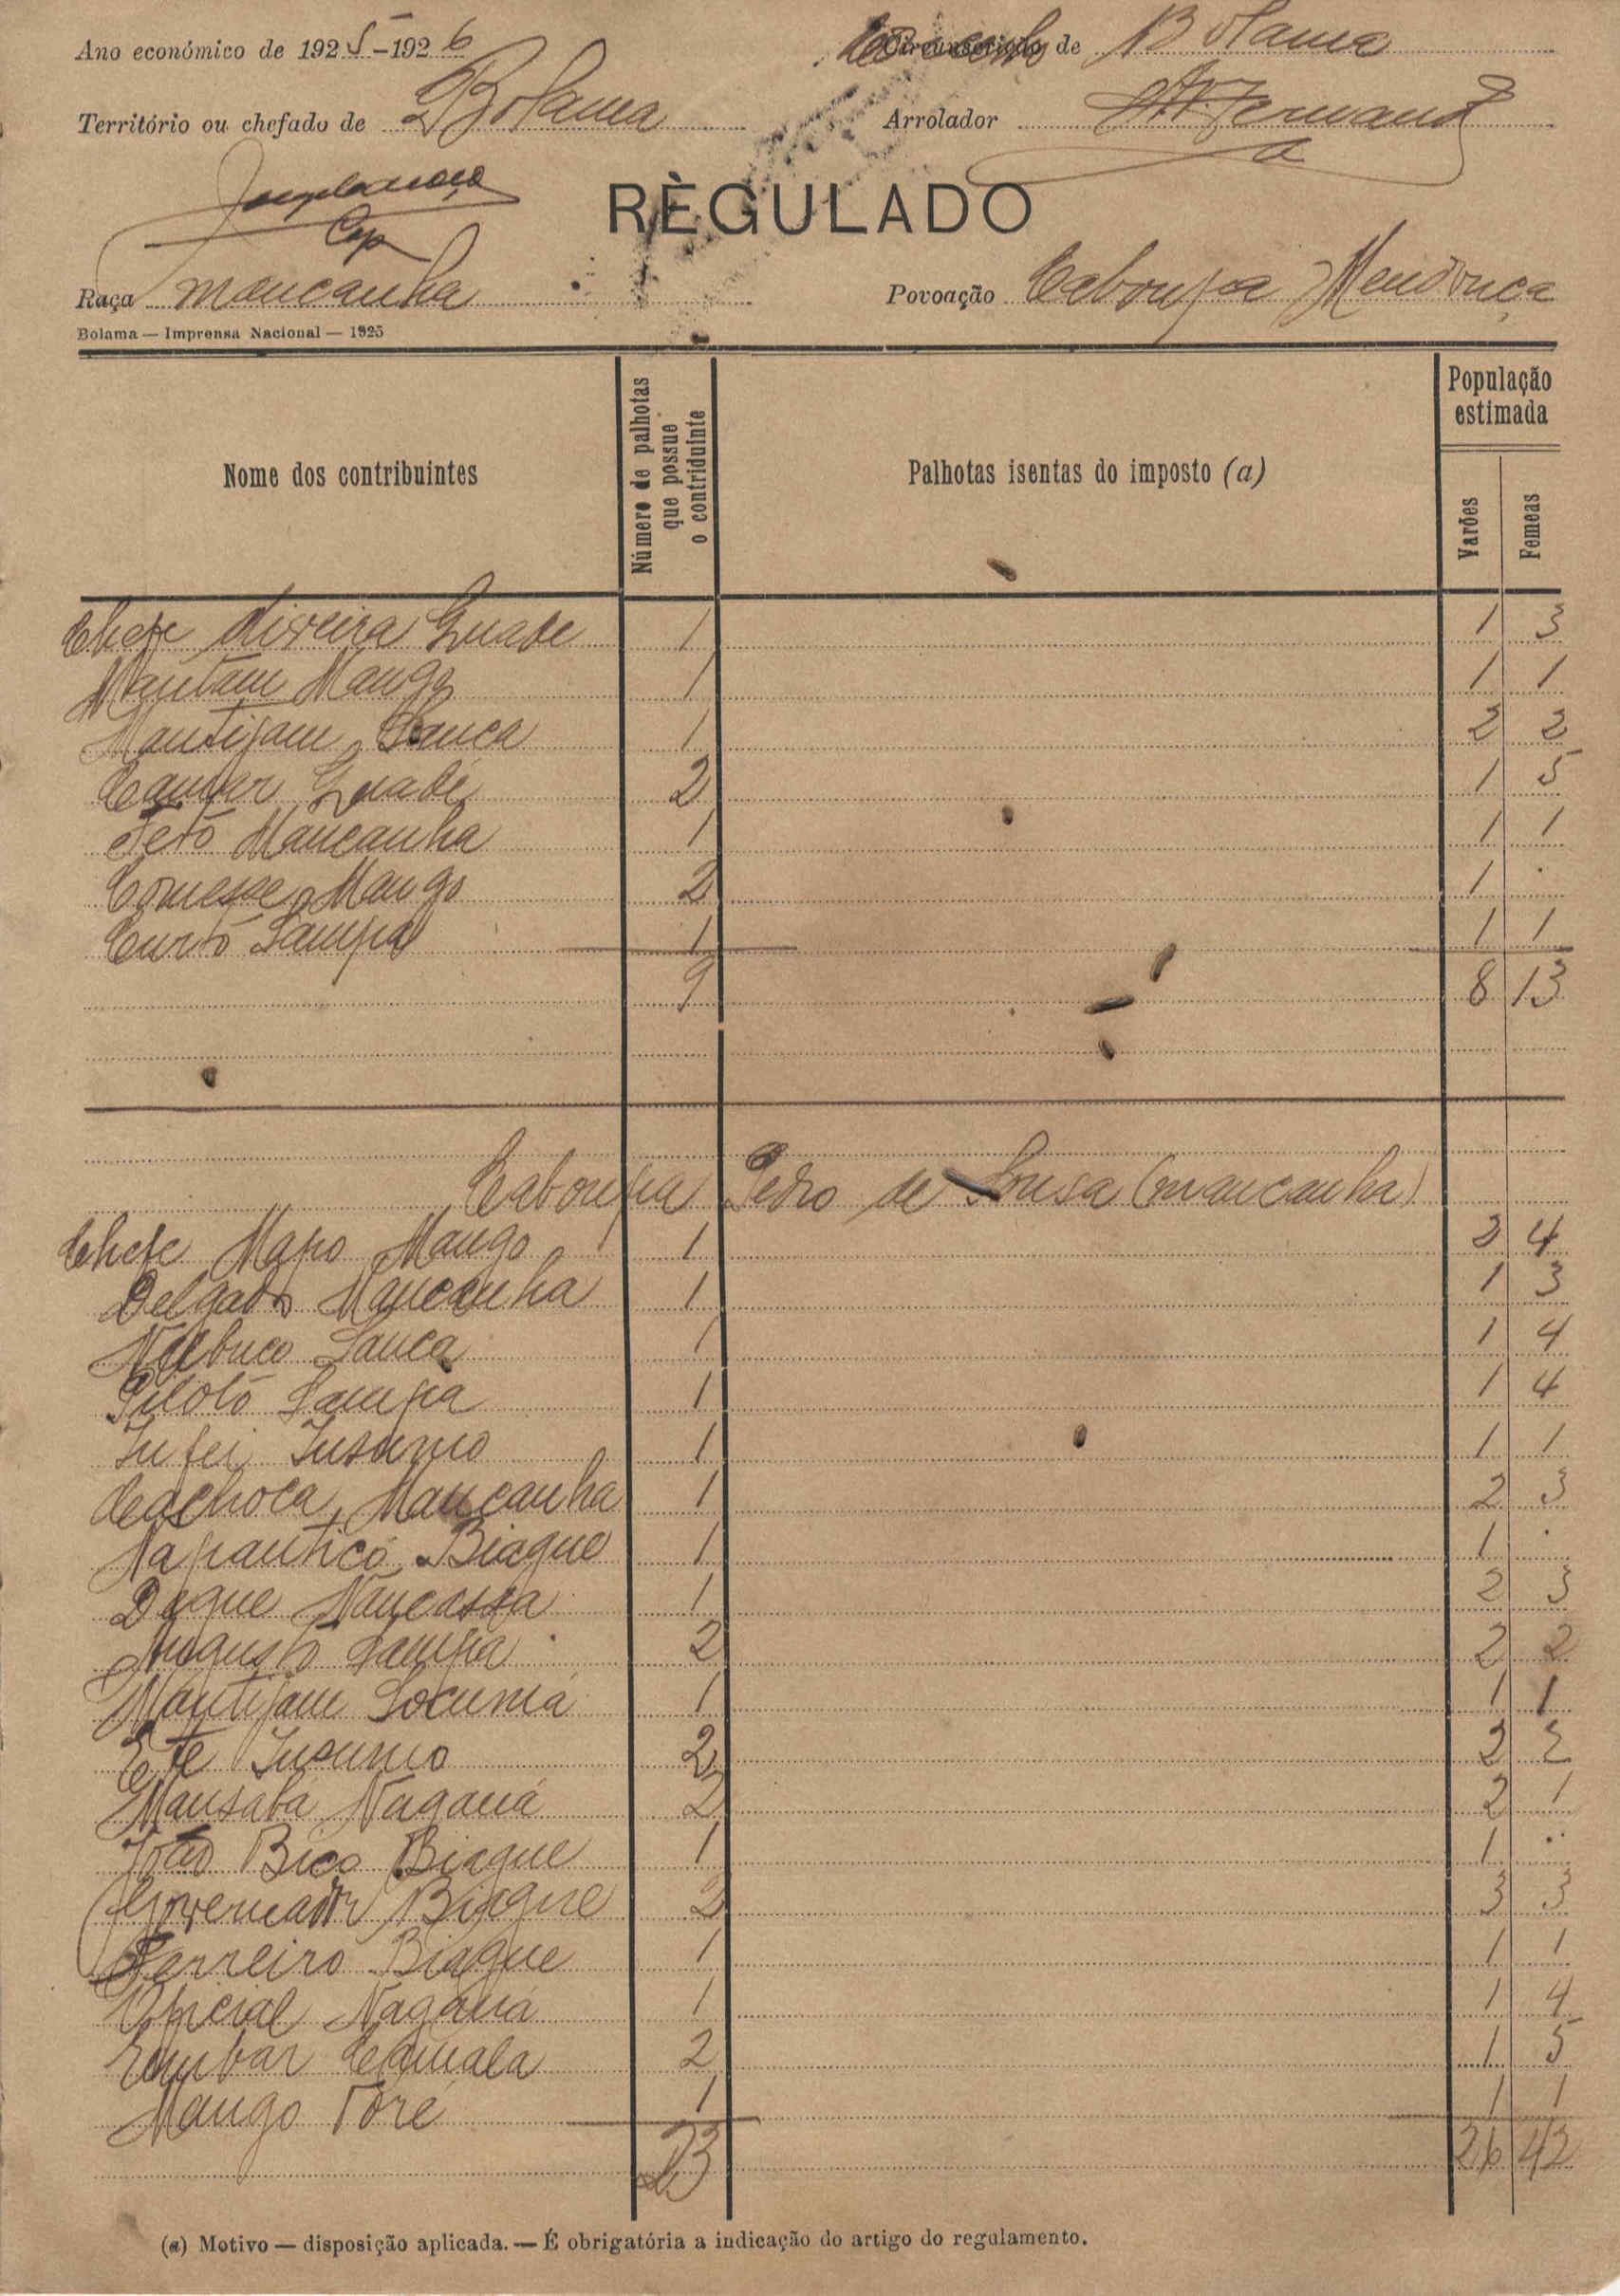 Ano económico de 1925-1926 Concelho de Bolama
Território ou chefado de Bolama Arrolador Fernand
RÈGULADO
Cap
Raça mancanha Povoação Caboupa Mendonça
Bolama — Imprensa Nacional — 1925
Nome dos contribuintes Número de palhotas que possue o contriduinte Palhotas isentas do imposto (a) População estimada Varões Femeas
Chefe Oliveira Guade 1 1 3
Mantam Mango 1 1 1
Mantijam 1 2 2
Guadé 2 1 5
Tetó Mancanha 1 1 1
Comesse Mango 2 1 .
Curtó Sampa 1 1 1
9 8 13
Caboupa Pedro de Sousa (mancanha)
Chefe Mapo Mango 1 2 4
Delgado Mancanha 1 1 3
Nabuco Sanca 1 1 4
Pilotó Sampa 1 1 4
Jufei Insumo 1 1 1
Cachoca Mancanha 1 2 3
Napanticó Biague 1 1 .
Duque Nancassa 1 2 3
Augusto Sampa 2 2 2
Mantijam Socumá 1 1 1
Insumo 2 2 2
Mansabá Naganá 2 2 1
João Bico Biague 1 1 .
Governador Biague 2 3 3
Ferreiro Biague 1 1 1
Oficial Naganá 1 1 4
2 1 5
Mango Toré 1 1 1
23 26 42
(a) Motivo — disposição aplicada. — É obrigatória a indicação do artigo do regulamento.